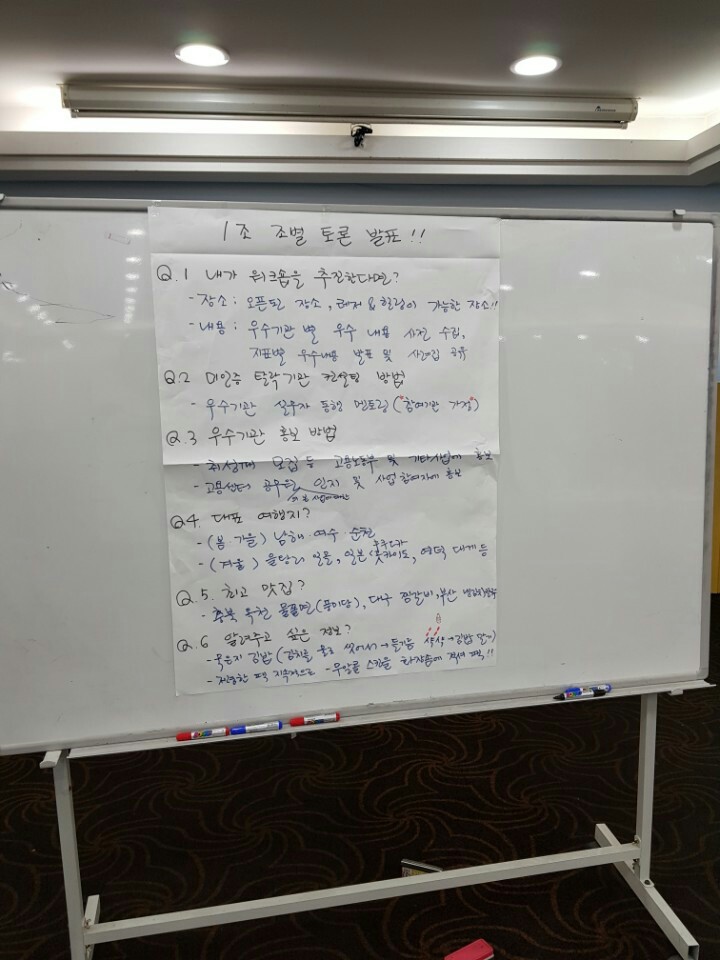 1조 조별 토론 발표!!
Q.1 내가 워크숍을 추진한다면?
- 장소 : 오픈된 장소, 레저 & 힐링이 가능한 장소!!
- 내용 : 우수기관 별 우수 내용 사전 수집,
지표별 우수내용 발표 및 사례집 공유
Q.2 미인증 탈락기관 컨설팅 방법
- 우수기관 실무자 동행 멘토링 (참여기관 가정)
Q.3 우수기관 홍보 방법
- 취성패 모집 등 고용노동부 및 기타사업에 홍보
- 고용센터 공무원 인지 및 사업 참여자에 홍보
Q4. 대표 여행지?
- (봄·가을) 남해·여수·순천
후쿠오카
- (겨울) 울단리 일몰, 일본 홋카이도, 영덕 대게 등
Q.5. 최고 맛집?
- 충북 옥천 물쫄면 (풍미당), 대구 찜갈비, 부산
Q.6 알려주고 싶은 정보?
- 묵은지 김밥 (김치를 물로 씻어서 → 들기름 샥샥 → 김밥 말기)
- 저렴한 팩 지속적으로 - 무알콜 스킨을 화장솜에 적셔 팩!!